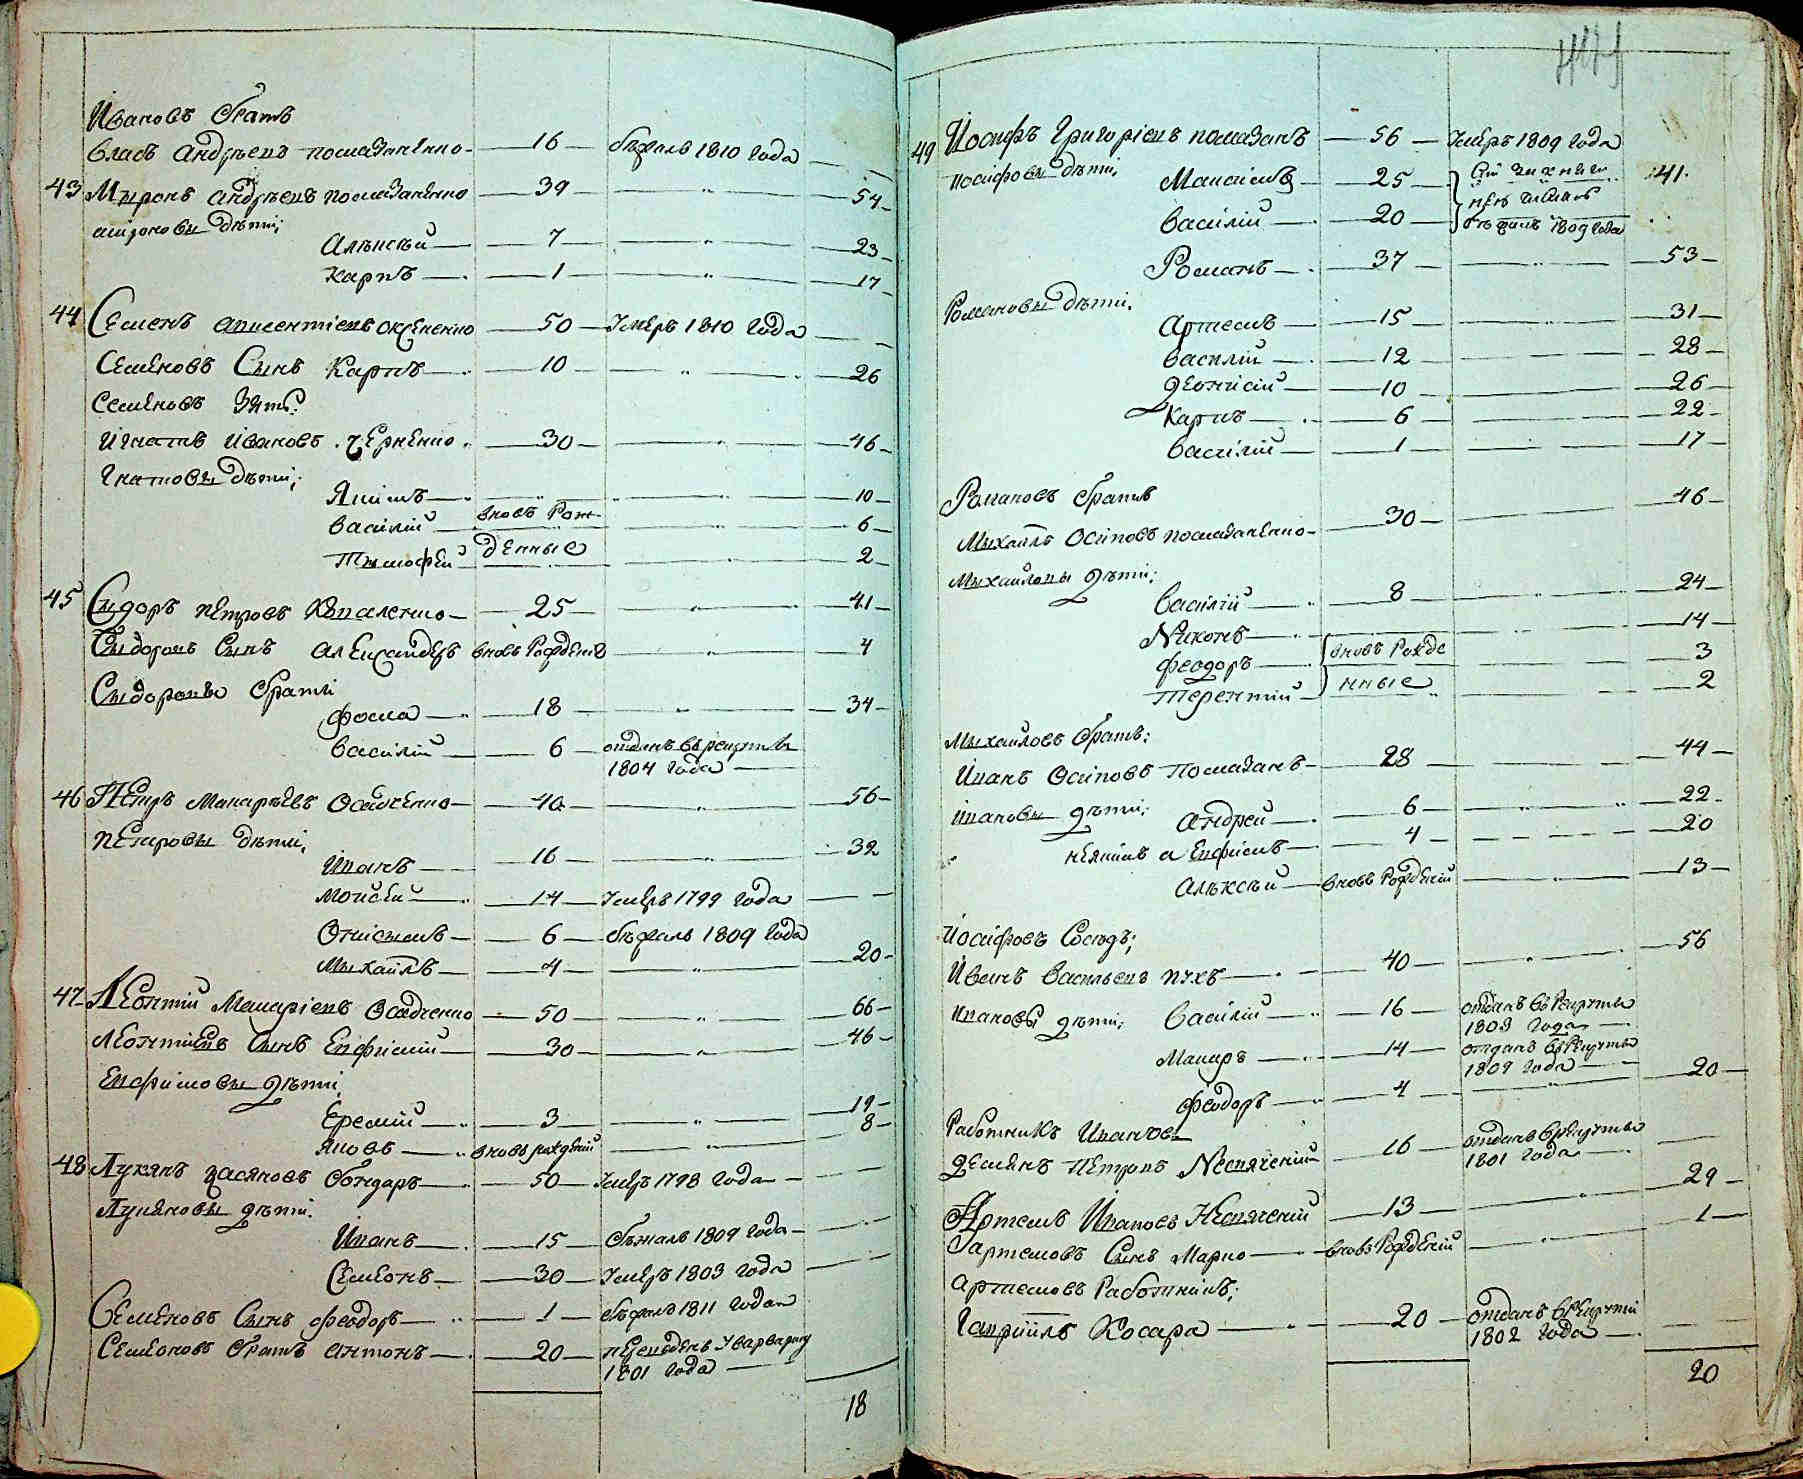 Ивановъ братъ
Власъ Андрѣевъ помазаненко — 16 — бѣжалъ 1810 года —
43 Миронъ Андрѣевъ помазаненко — 39 — " — 54
мироновы дѣти;
Алѣксѣй — 7 — " — 23
Карпъ — 1 — " — 17
44 Семенъ оксененко — 50 — Умеръ 1810 года —
Семеновъ Сынъ Карпъ — 10 — " — 26
Семеновъ Зять:
Игнатъ Ивановъ черненко — 30 — " — 46
Игнатовы дѣти;
Якимъ — " — 10
Василій — вновь Рож — " — 6
Тымофей — денные — " — 2
45 Сидоръ петровъ Коваленко — 25 — " — 41
Сыдоровъ Сынъ Александеръ вновь Рожденъ — " — 4
Сыдоровы братья
фома — 18 — " — 34
Василій — 6 — отданъ въ рекруты
1804 года —
46 Петръ Макарѣевъ Осадченко — 40 — " — 56
петровы дѣти;
Иванъ — 16 — " — 32
Мойсей — 14 — Умеръ 1799 года —
Онисымъ — 6 — бѣжалъ 1809 года
Мыхайлъ — 4 — " — 20
47 Леонтій Макаріевъ Осадченко — 50 — " — 66
Леонтіевъ Сынъ Евфимій — 30 — " — 46
Евфимовы дѣти;
Еремій — 3 — " — 19
Яковъ — вновь рожденій — " — 8
48 Лукянъ Касяновъ бондарь — 50 — Умеръ 1798 года —
Лукяновы дѣти:
Иванъ — 15 — бѣжалъ 1809 года —
Семенъ — 30 — Умеръ 1803 года
Семеновъ Сынъ феодоръ — 1 — бѣжалъ 1811 года
Семеновъ братъ антонъ — 20 — переведенъ Уварварку
1801 года —
18
49 Йосифъ Григоріевъ помазанъ — 56 — Умеръ 1809 года
иосифовы дѣти;
Максимъ — 25 — 41
Василій — 20 — бѣжалъ 1809 года
Романъ — 37 — " — 53
Романовы дѣти;
Артемъ — 15 — " — 31
Василій — 12 — 28
Деонисій — 10 — 26
Карпъ — 6 — 22
Василій — 1 — 17
Романовъ братъ
Мыхайлъ Осиповъ помазаненко — 30 — 46
Мыхайловы дѣти;
Василій — 8 — " — 24
Никонъ — 14
феодоръ — вновь Рожде — 3
Терентий — нные " — 2
Мыхайловъ братъ:
Иванъ Осиповъ Помазанъ — 28 — 44
Ивановы дѣти;
Андрей — 6 — " — 22
а Евфимъ — 4 — 20
Алѣксѣй — вновь Рожденій — " — 13
Иосифовъ Сосѣдъ;
Иванъ Васильевъ пухъ — 40 — " — 56
Ивановы дѣти; Василій — 16 — отданъ въ Рекруты
1803 года —
Макаръ — 14 — отданъ въ Рекруты
1809 года —
Феодоръ — 4 — " — 20
Работникъ Ивановъ
Демянъ Петровъ — 16 — отданъ в Рекруты
1801 года —
Артемъ Ивановъ — 13 — " — 29
Гартемовъ Сынъ Марко — вновь Рожденій — " — 1
Артемовъ Работникъ;
Гавриилъ Косара — 20 — отданъ в Рекруты
1802 года —
20